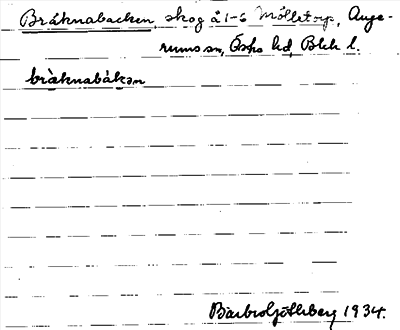 Bråknabacken, skog å 1-6 Mölletorp, Auge-
rums sn, Östra hd, Blek l.
bråknabákan
Barbro Göthberg 1934.